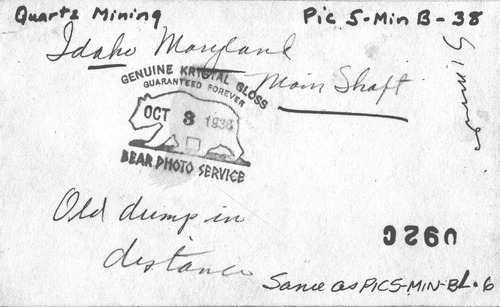 Quartz Mining
Pic S-Min B-38
Idaho Maryland
Main Shaft
GENUINE KRYSTAL GLOSS
GUARANTEED FOREVER
OCT 3 1936
BEAR PHOTO SERVICE
Old dump in
distance
Same as PICS-MIN-BL.6